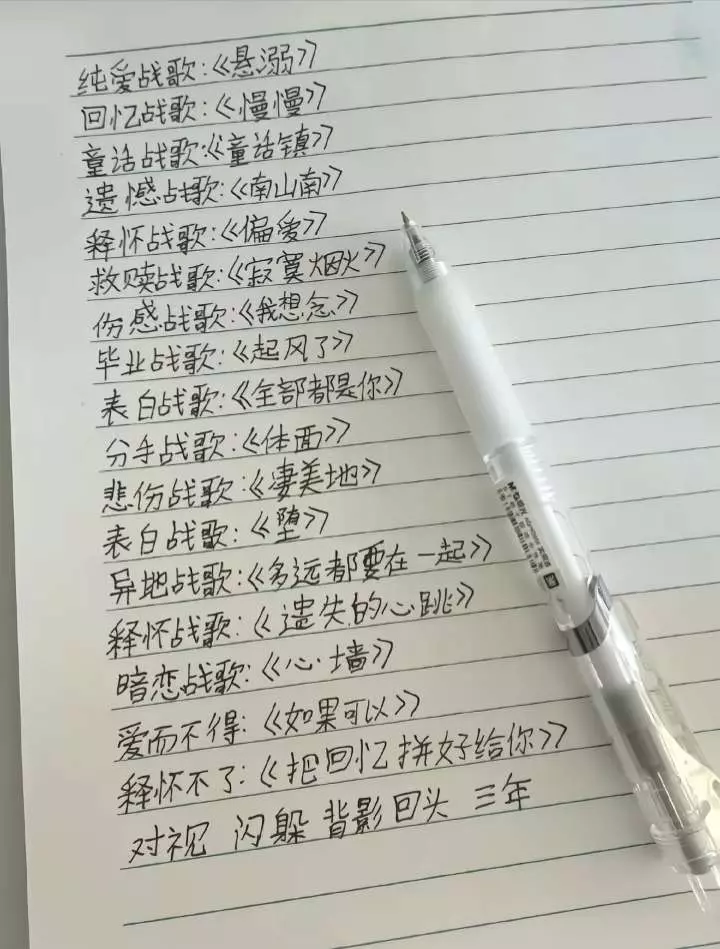 纯爱战歌:《悬溺》
回忆战歌:《慢慢》
童话战歌:《童话镇》
遗憾战歌:《南山南》
释怀战歌:《偏爱》
救赎战歌:《寂寞烟火》
伤感战歌:《我想念》
毕业战歌:《起风了》
表白战歌:《全部都是你》
分手战歌:《体面》
悲伤战歌:《凄美地》
表白战歌:《堕》
异地战歌:《多远都要在一起》
释怀战歌:《遗失的心跳》
暗恋战歌:《心墙》
爱而不得:《如果可以》
释怀不了:《把回忆拼好给你》
对视 闪躲 背影 回头 三年